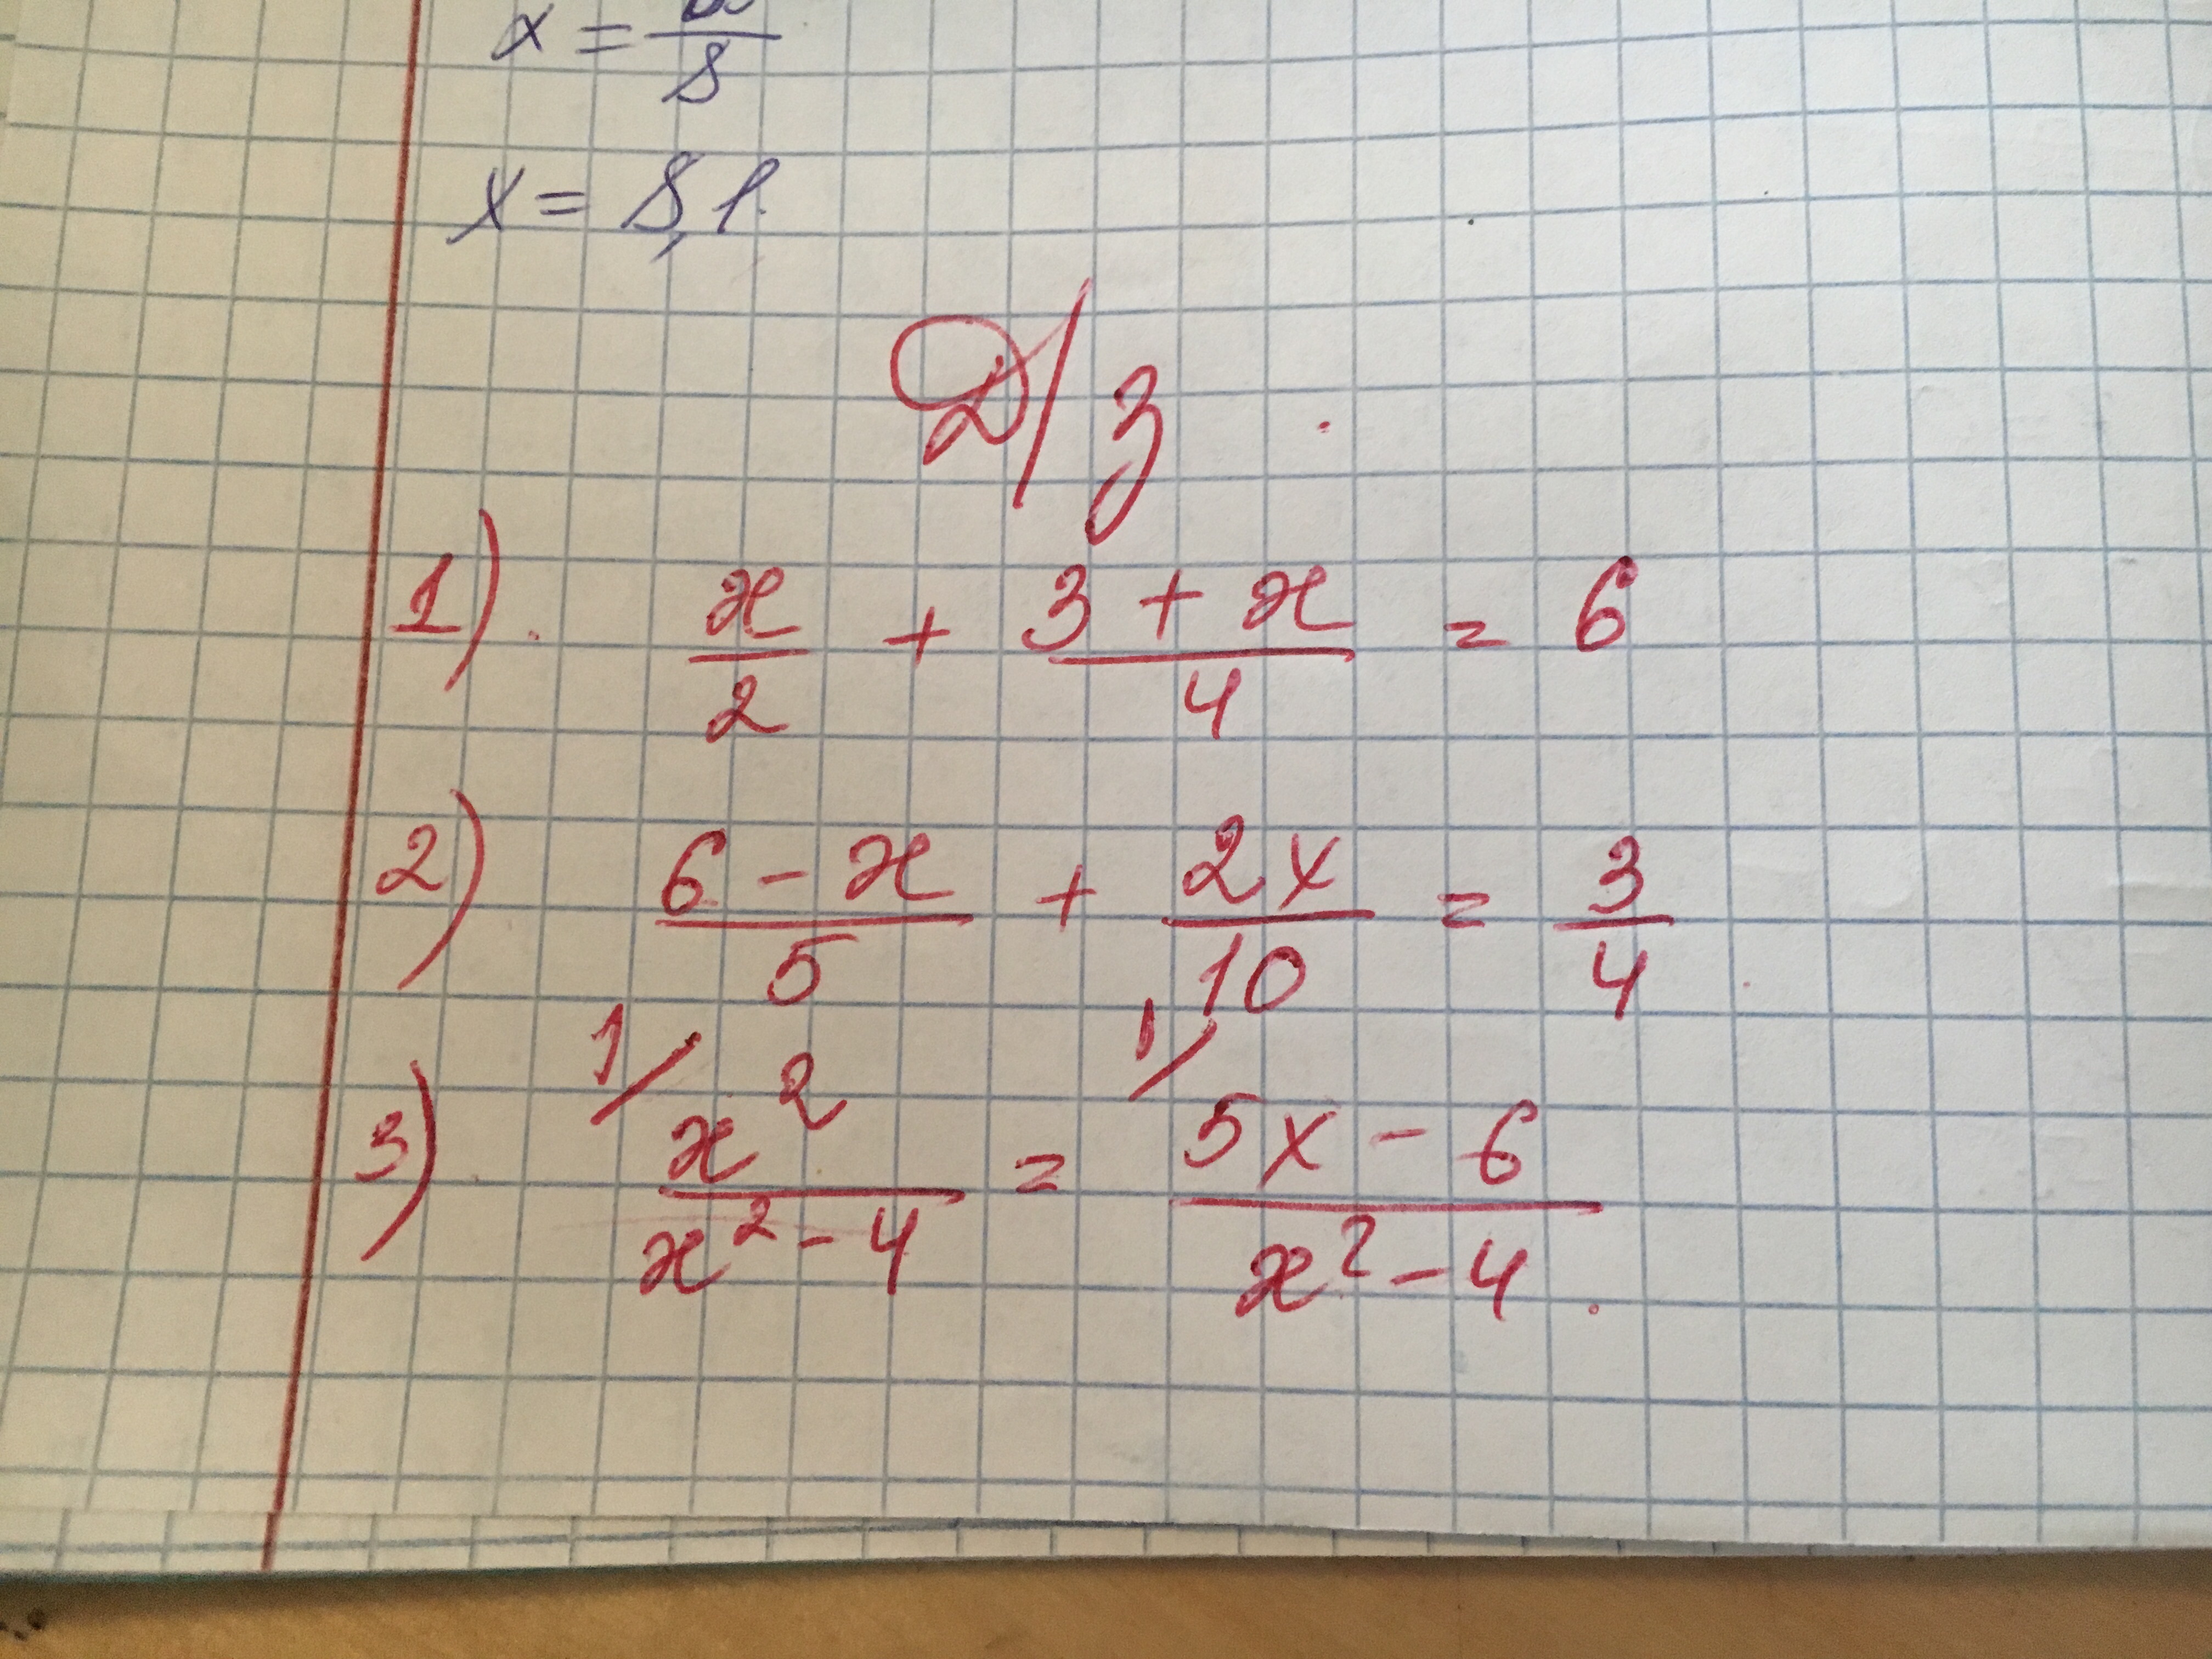 x = 8,1
Д/З
1) x/2 + (3 + x)/4 = 6
2) (6 - x)/5 + 2x/10 = 3/4
3) 1/ x²/(x² - 4) = 1/ (5x - 6)/(x² - 4)